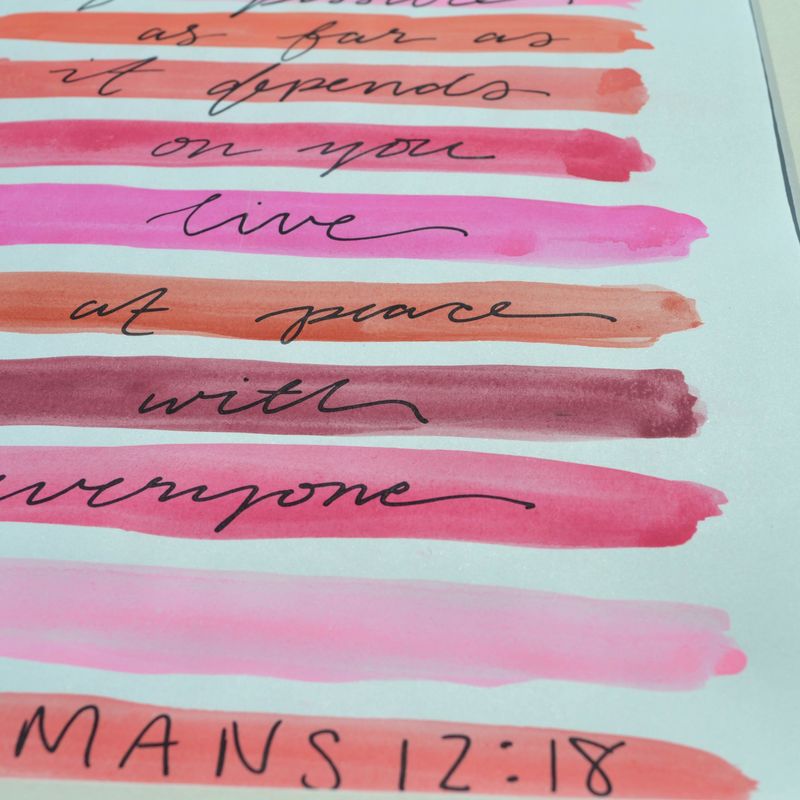 as far as
it depends
on you
live
at peace
with
everyone
MANS 12:18